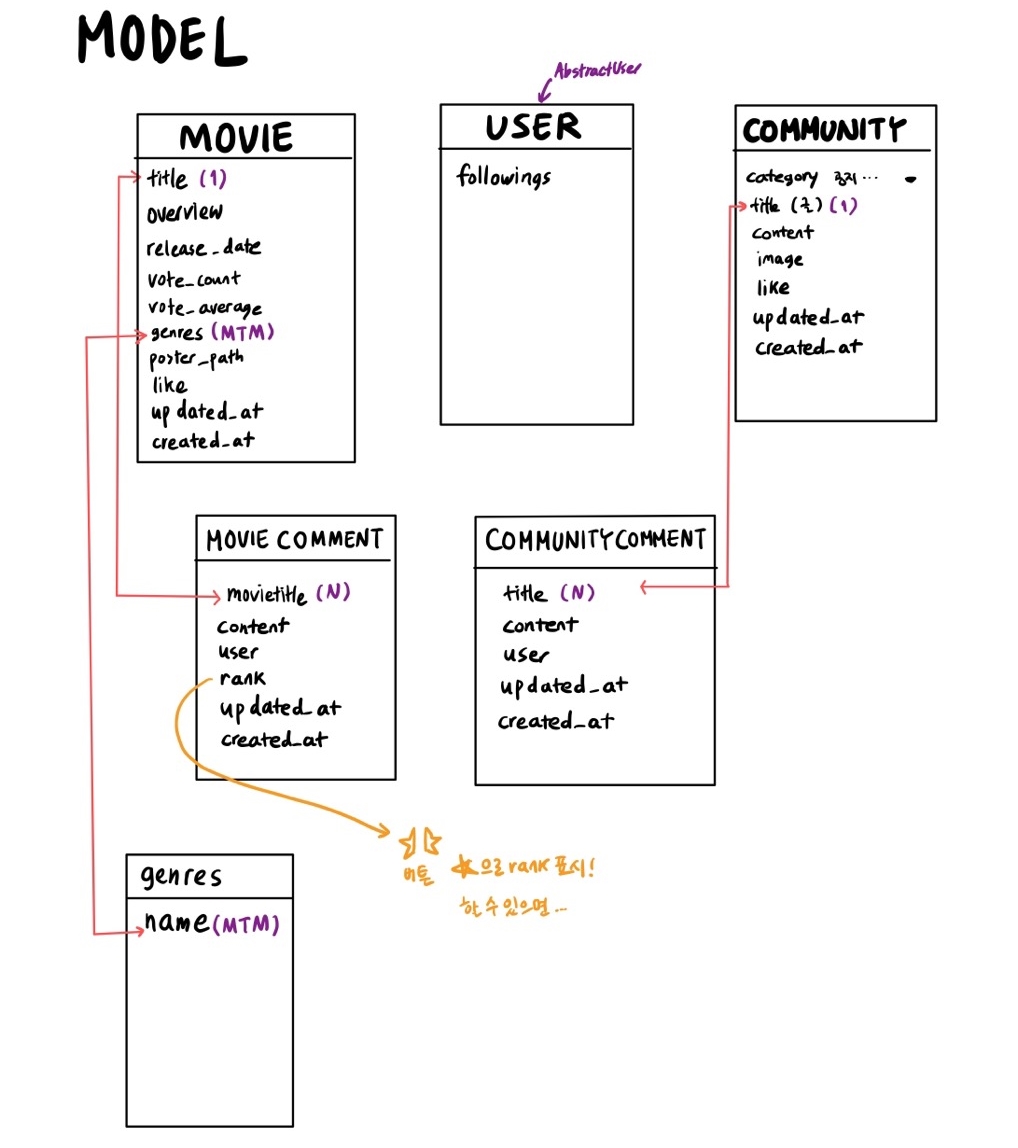 MODEL
AbstractUser
MOVIE
title (1)
overview
release_date
vote_count
vote_average
genres (MTM)
poster_path
like
updated_at
created_at
USER
followings
COMMUNITY
category 공지...
title (글) (1)
content
image
like
updated_at
created_at
MOVIE COMMENT
movietitle (N)
content
user
rank
updated_at
created_at
COMMUNITYCOMMENT
title (N)
content
user
updated_at
created_at
버튼
★으로 rank 표시!
할 수 있으면...
genres
name (MTM)